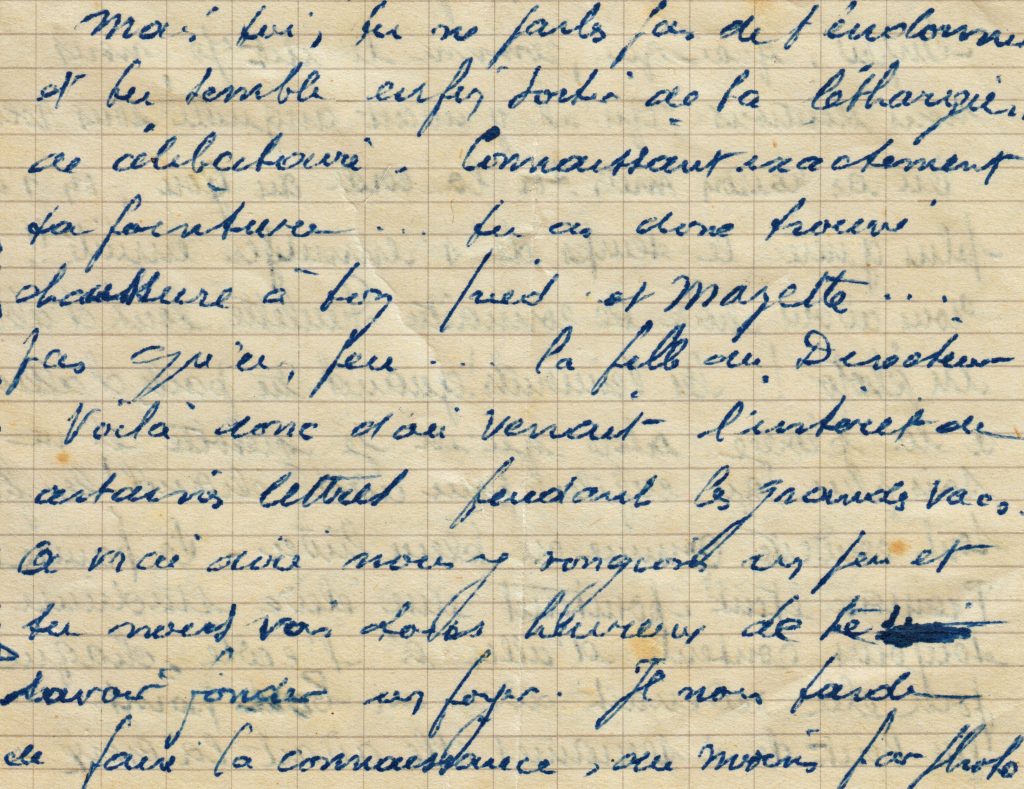 Mais toi, tu ne parles pas de t'endormir
et tu semble enfin sortir de ta léthargie
de célibataire. Connaissant exactement
ta pointure ... tu as donc trouvé
chaussure à ton pied et Mazette ...
pas qu'un peu ... la fille du Directeur
Voilà donc d'où venait l'interet de
certaines lettres pendant les grandes vacs.
A vrai dire nous y songions un peu et
tu nous vois tous heureux de te
savoir fonder un foyer. Il nous tarde
de faire la connaissance, au moins par photo